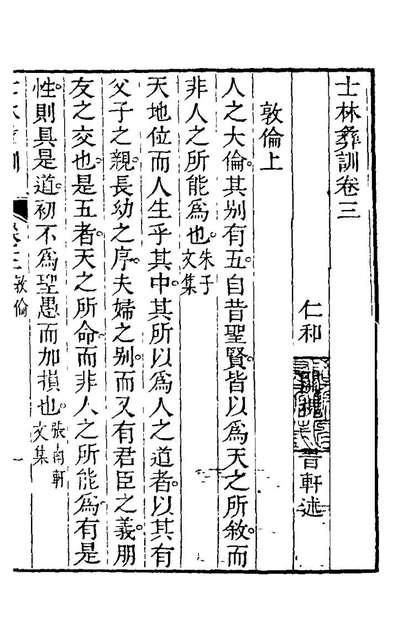 士林彝訓卷三
仁和 關槐 晉軒述
敦倫上
人之大倫其别有五自昔聖賢皆以爲天之所敘而
非人之所能爲也朱子文集
天地位而人生乎其中其所以爲人之道者以其有
父子之親長幼之序夫婦之别而又有君臣之義朋
友之交也是五者天之所命而非人之所能爲有是
性則具是道初不爲聖愚而加損也張南軒文集
士林彝訓 卷三 敦倫 一